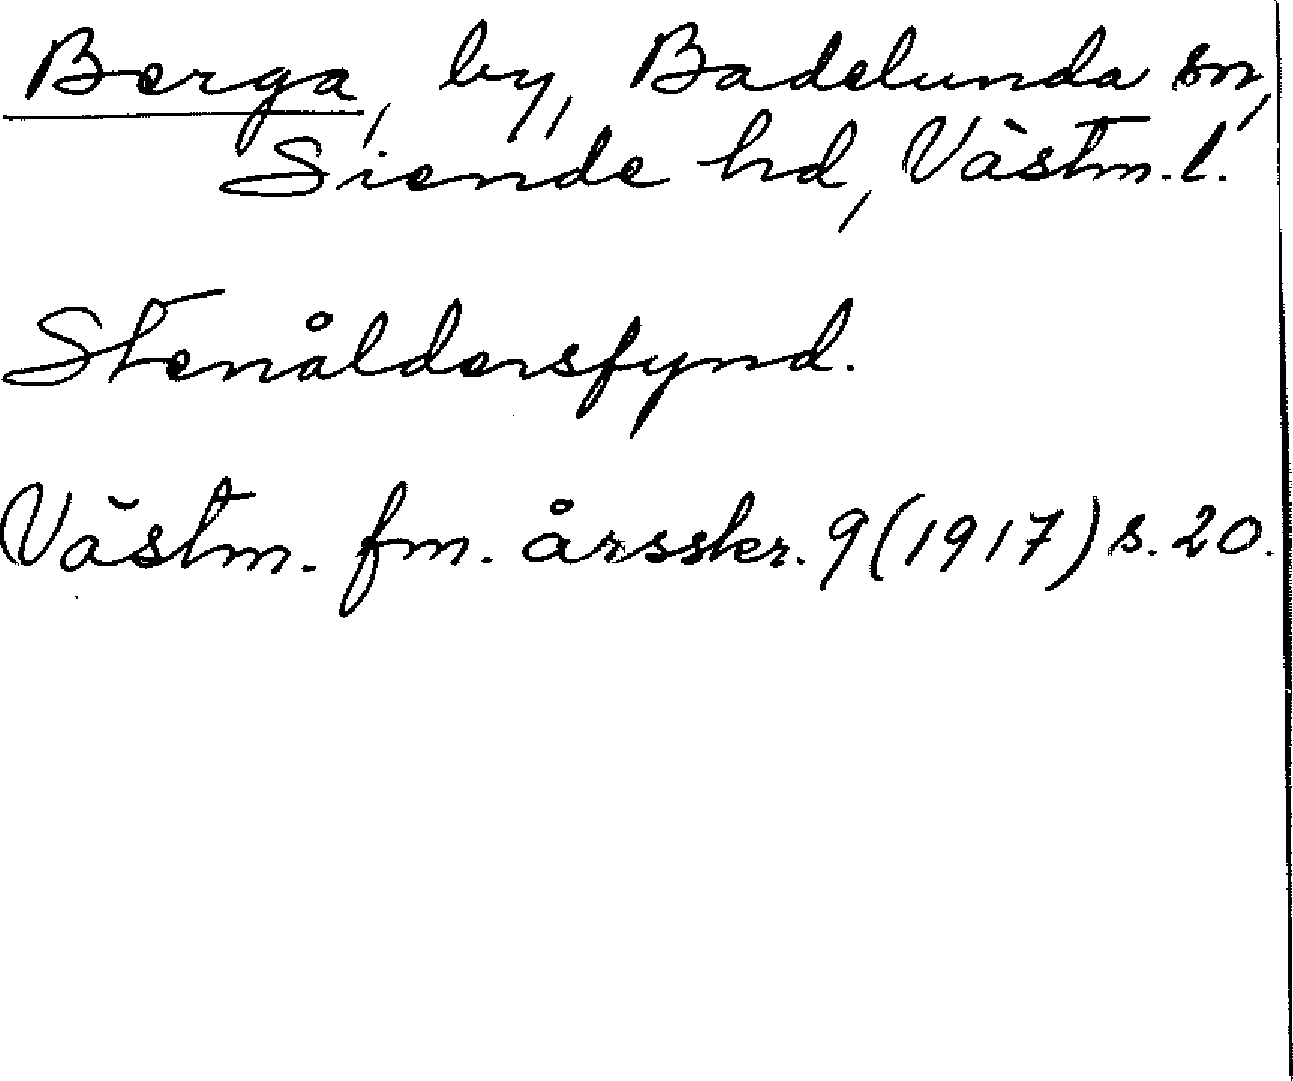 Berga, by, Badelunda sn,
Siende hd, Västm. l.
Stenåldersfynd.
Västm. fm. årsskr. 9 (1917) s. 20.